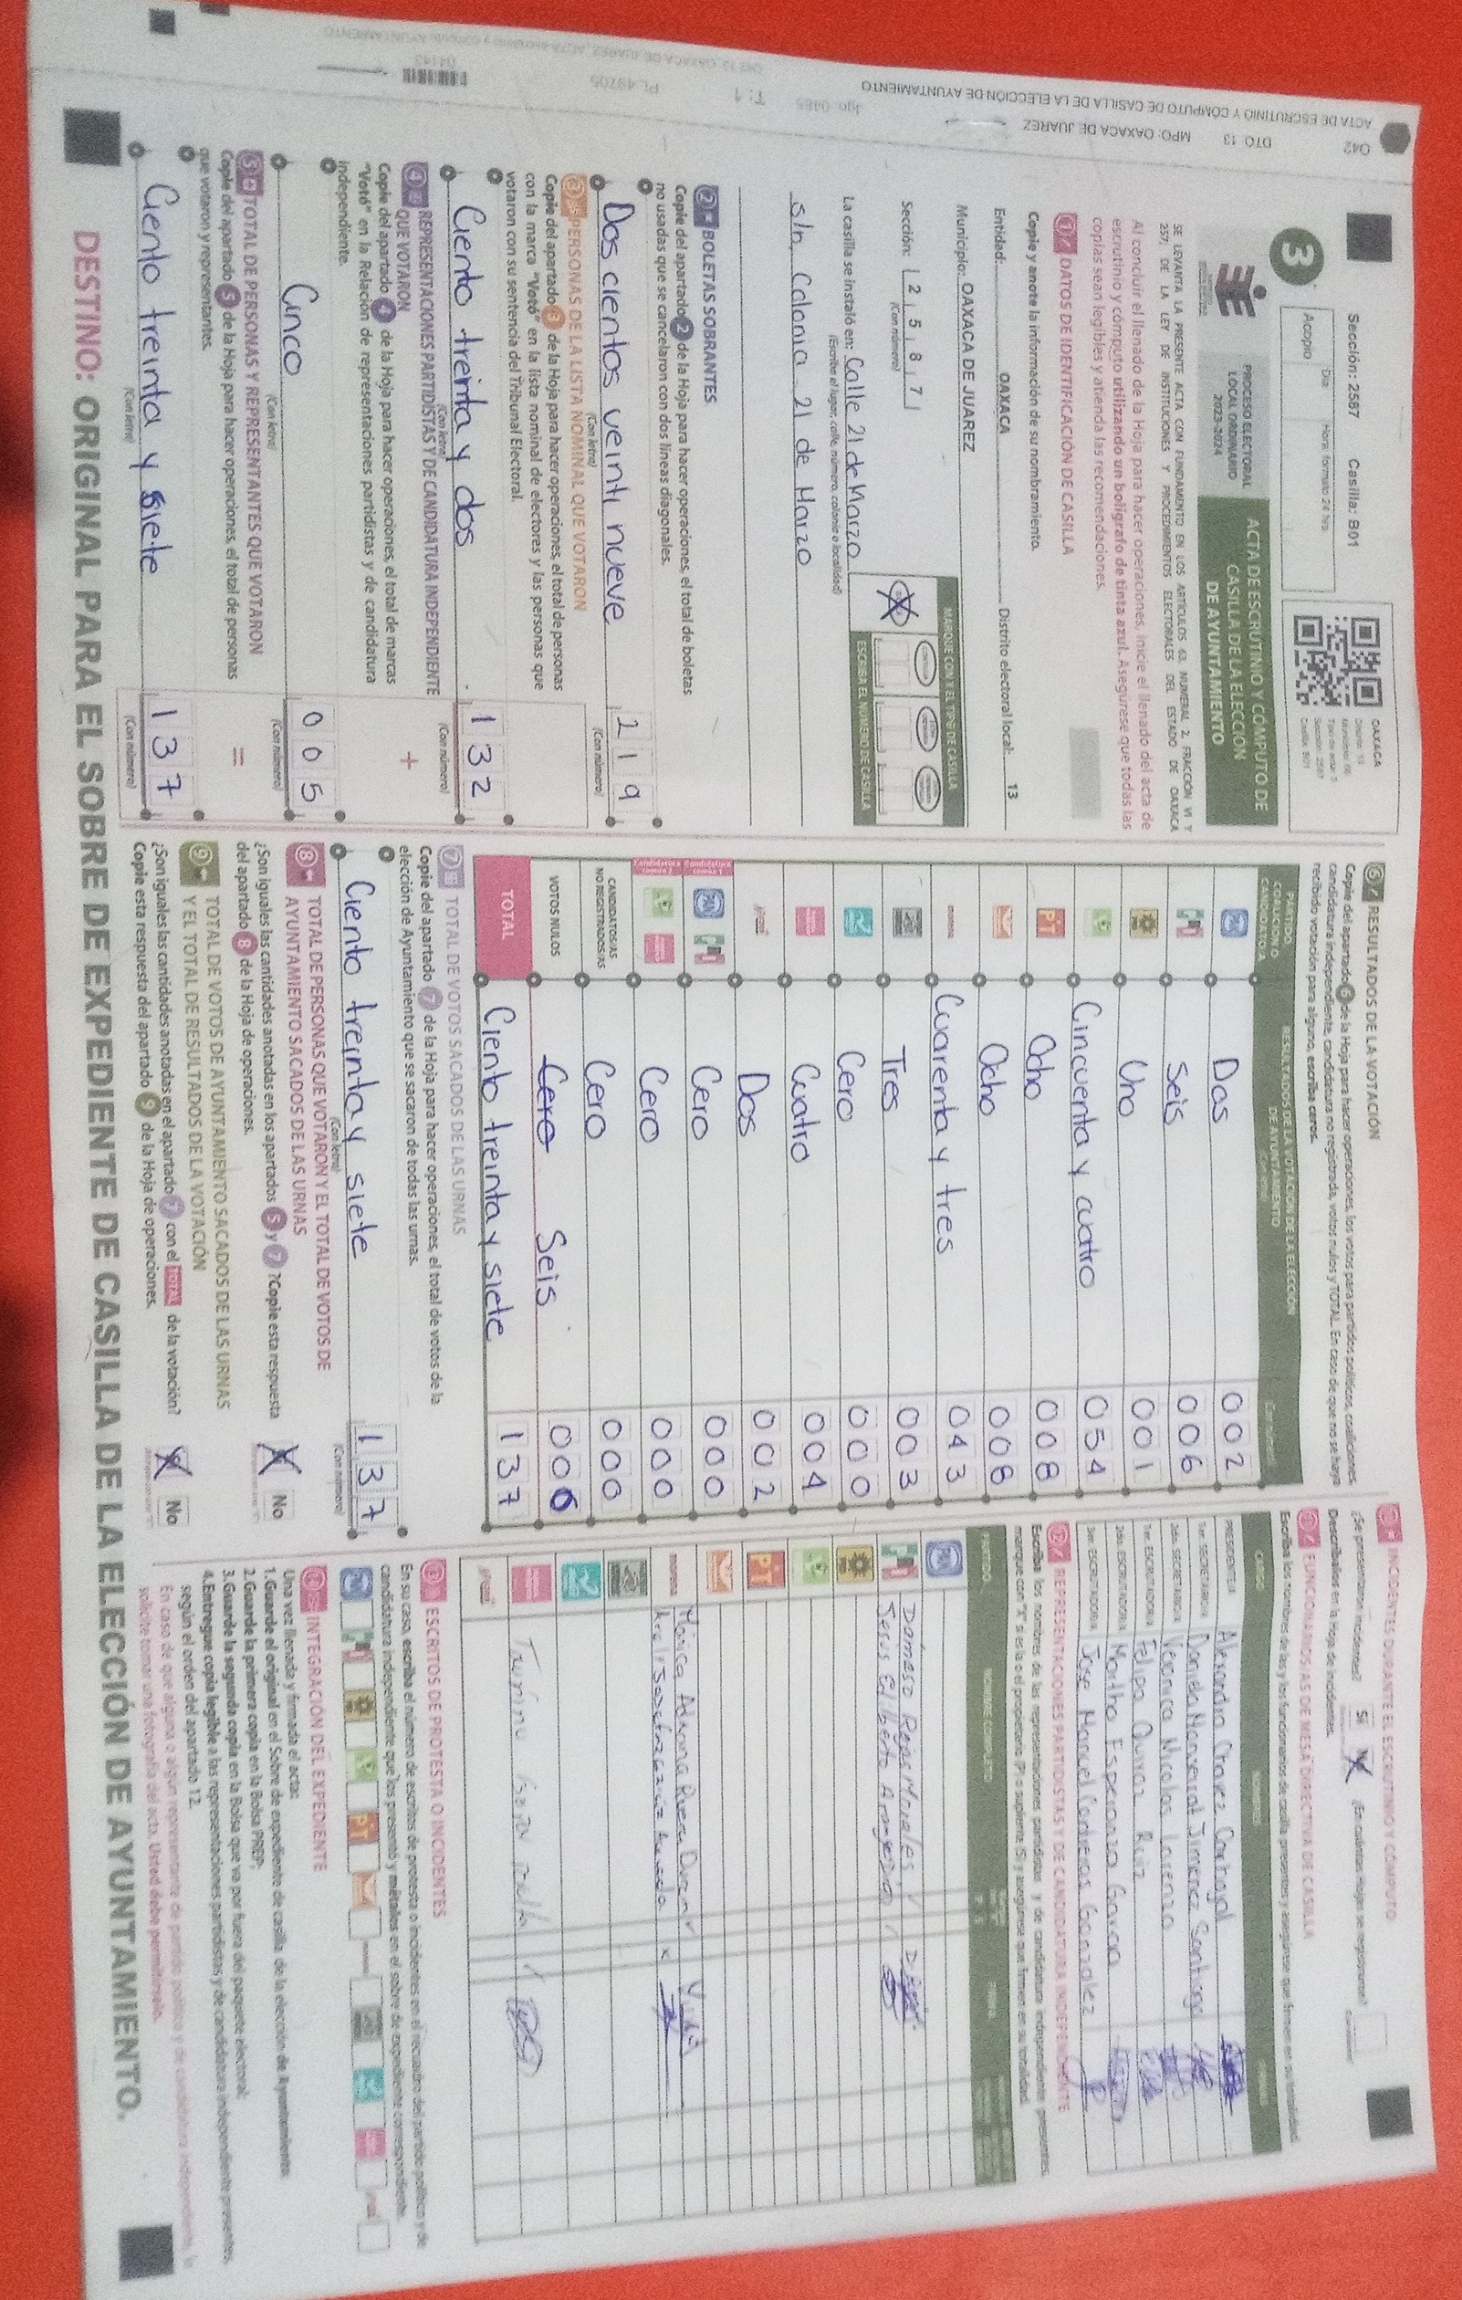 042 DTO: 13 MPO: OAXACA DE JUAREZ
ACTA DE ESCRUTINIO Y CÓMPUTO DE CASILLA DE LA ELECCIÓN DE AYUNTAMIENTO
Sección: 2587 Casilla: B01
3
Acopio
Día Hora formato 24 hrs.
OAXACA
PROCESO ELECTORAL
LOCAL ORDINARIO
2023-2024
ACTA DE ESCRUTINIO Y CÓMPUTO DE
CASILLA DE LA ELECCIÓN
DE AYUNTAMIENTO
SE LEVANTA LA PRESENTE ACTA CON FUNDAMENTO EN LOS ARTÍCULOS 63, NUMERAL 2, FRACCIÓN VI Y
257, DE LA LEY DE INSTITUCIONES Y PROCEDIMIENTOS ELECTORALES DEL ESTADO DE OAXACA
Al concluir el llenado de la Hoja para hacer operaciones, inicie el llenado del acta de
escrutinio y cómputo utilizando un bolígrafo de tinta azul. Asegúrese que todas las
copias sean legibles y atienda las recomendaciones.
1 DATOS DE IDENTIFICACIÓN DE CASILLA
Copie y anote la información de su nombramiento.
Entidad: OAXACA Distrito electoral local: 13
Municipio: OAXACA DE JUAREZ
Sección: 2 5 8 7
(Con número)
MARQUE CON X EL TIPO DE CASILLA
ESCRIBA EL NÚMERO DE CASILLA
La casilla se instaló en: Calle 21 de Marzo
(Escriba el lugar, calle, número, colonia o localidad)
s/n. Colonia 21 de Marzo
2 BOLETAS SOBRANTES
Copie del apartado 2 de la Hoja para hacer operaciones, el total de boletas
no usadas que se cancelaron con dos líneas diagonales.
Dos cientos veinti nueve 219
(Con letra) (Con número)
3 PERSONAS DE LA LISTA NOMINAL QUE VOTARON
Copie del apartado 3 de la Hoja para hacer operaciones, el total de personas
con la marca "Votó" en la lista nominal de electores y las personas que
votaron con su sentencia del Tribunal Electoral.
Ciento treinta y dos 132
(Con letra) (Con número)
4 REPRESENTACIONES PARTIDISTAS Y DE CANDIDATURA INDEPENDIENTE
QUE VOTARON +
Copie del apartado 4 de la Hoja para hacer operaciones, el total de marcas
"Votó" en la Relación de representaciones partidistas y de candidatura
independiente.
Cinco 005
(Con letra) (Con número)
5 TOTAL DE PERSONAS Y REPRESENTANTES QUE VOTARON
Copie del apartado 5 de la Hoja para hacer operaciones, el total de personas
que votaron y representantes. =
Ciento treinta y siete 137
(Con letra) (Con número)
6 RESULTADOS DE LA VOTACIÓN
Copie del apartado 6 de la Hoja para hacer operaciones, los votos para partidos políticos, coaliciones,
candidatura independiente, candidatura no registrada, votos nulos y TOTAL. En caso de que no se haya
recibido votación para alguno, escriba ceros.
PARTIDO, COALICIÓN O CANDIDATURA
RESULTADOS DE LA VOTACIÓN DE LA ELECCIÓN
DE AYUNTAMIENTO
PAN Dos 002
PRI Seis 006
PRD Uno 001
Cincuenta y cuatro 054
PT Ocho 008
Ocho 008
morena Cuarenta y tres 043
Tres 003
Cero 000
Cuatro 004
Dos 002
PAN PRI Cero 000
Cero 000
CANDIDATOS/AS
NO REGISTRADOS/AS Cero 000
VOTOS NULOS Cero Seis 006
TOTAL Ciento treinta y siete 137
7 TOTAL DE VOTOS SACADOS DE LAS URNAS
Copie del apartado 7 de la Hoja para hacer operaciones, el total de votos de la
elección de Ayuntamiento que se sacaron de todas las urnas.
Ciento treinta y siete 137
(Con letra) (Con número)
8 TOTAL DE PERSONAS QUE VOTARON Y EL TOTAL DE VOTOS DE
AYUNTAMIENTO SACADOS DE LAS URNAS
¿Son iguales las cantidades anotadas en los apartados 5 y 7? Copie esta respuesta
del apartado 8 de la Hoja de operaciones. No
9 TOTAL DE VOTOS DE AYUNTAMIENTO SACADOS DE LAS URNAS
Y EL TOTAL DE RESULTADOS DE LA VOTACIÓN
¿Son iguales las cantidades anotadas en el apartado 7 con el TOTAL de la votación?
Copie esta respuesta del apartado 9 de la Hoja de operaciones. No
INCIDENTES DURANTE EL ESCRUTINIO Y CÓMPUTO
¿Se presentaron incidentes? Sí
Descríbalos en la Hoja de incidentes.
FUNCIONARIOS/AS DE MESA DIRECTIVA DE CASILLA
Escriba los nombres de las y los funcionarios de casilla presentes y asegúrese que firmen en su totalidad.
PRESIDENTE/A Alexandra Chavez Carbajal
1er. SECRETARIO/A Daniela Monserrat Jimenez Santiago
2do. SECRETARIO/A Veronica Nicolas Lorenzo
1er. ESCRUTADOR/A Felipa Quiroz Ruiz
2do. ESCRUTADOR/A Martha Esperanza Garcia
3er. ESCRUTADOR/A Jose Manuel Contreras Gonzalez
12 REPRESENTACIONES PARTIDISTAS Y DE CANDIDATURA INDEPENDIENTE
Escriba los nombres de las representaciones partidistas y de candidatura independiente presentes,
marque con "X" si es la o el propietario (P) o suplente (S) y asegúrese que firmen en su totalidad.
PARTIDO NOMBRE COMPLETO
Damaso Rojas Morales
13 ESCRITOS DE PROTESTA O INCIDENTES
En su caso, escriba el número de escritos de protesta o incidentes en el recuadro del partido político y de
candidatura independiente que los presentó y métalos en el sobre de expediente correspondiente.
INTEGRACIÓN DEL EXPEDIENTE
Una vez llenada y firmada el acta:
1. Guarde el original en el Sobre de expediente de casilla de la elección de Ayuntamiento;
2. Guarde la primera copia en la Bolsa PREP;
3. Guarde la segunda copia en la Bolsa que va por fuera del paquete electoral;
4. Entregue copia legible a las representaciones partidistas y de candidatura independiente presentes,
según el orden del apartado 12.
En caso de que alguna o algún representante de partido político y de candidatura independiente, le
solicite tomar una fotografía del acta, Usted debe permitírselo.
DESTINO: ORIGINAL PARA EL SOBRE DE EXPEDIENTE DE CASILLA DE LA ELECCIÓN DE AYUNTAMIENTO.